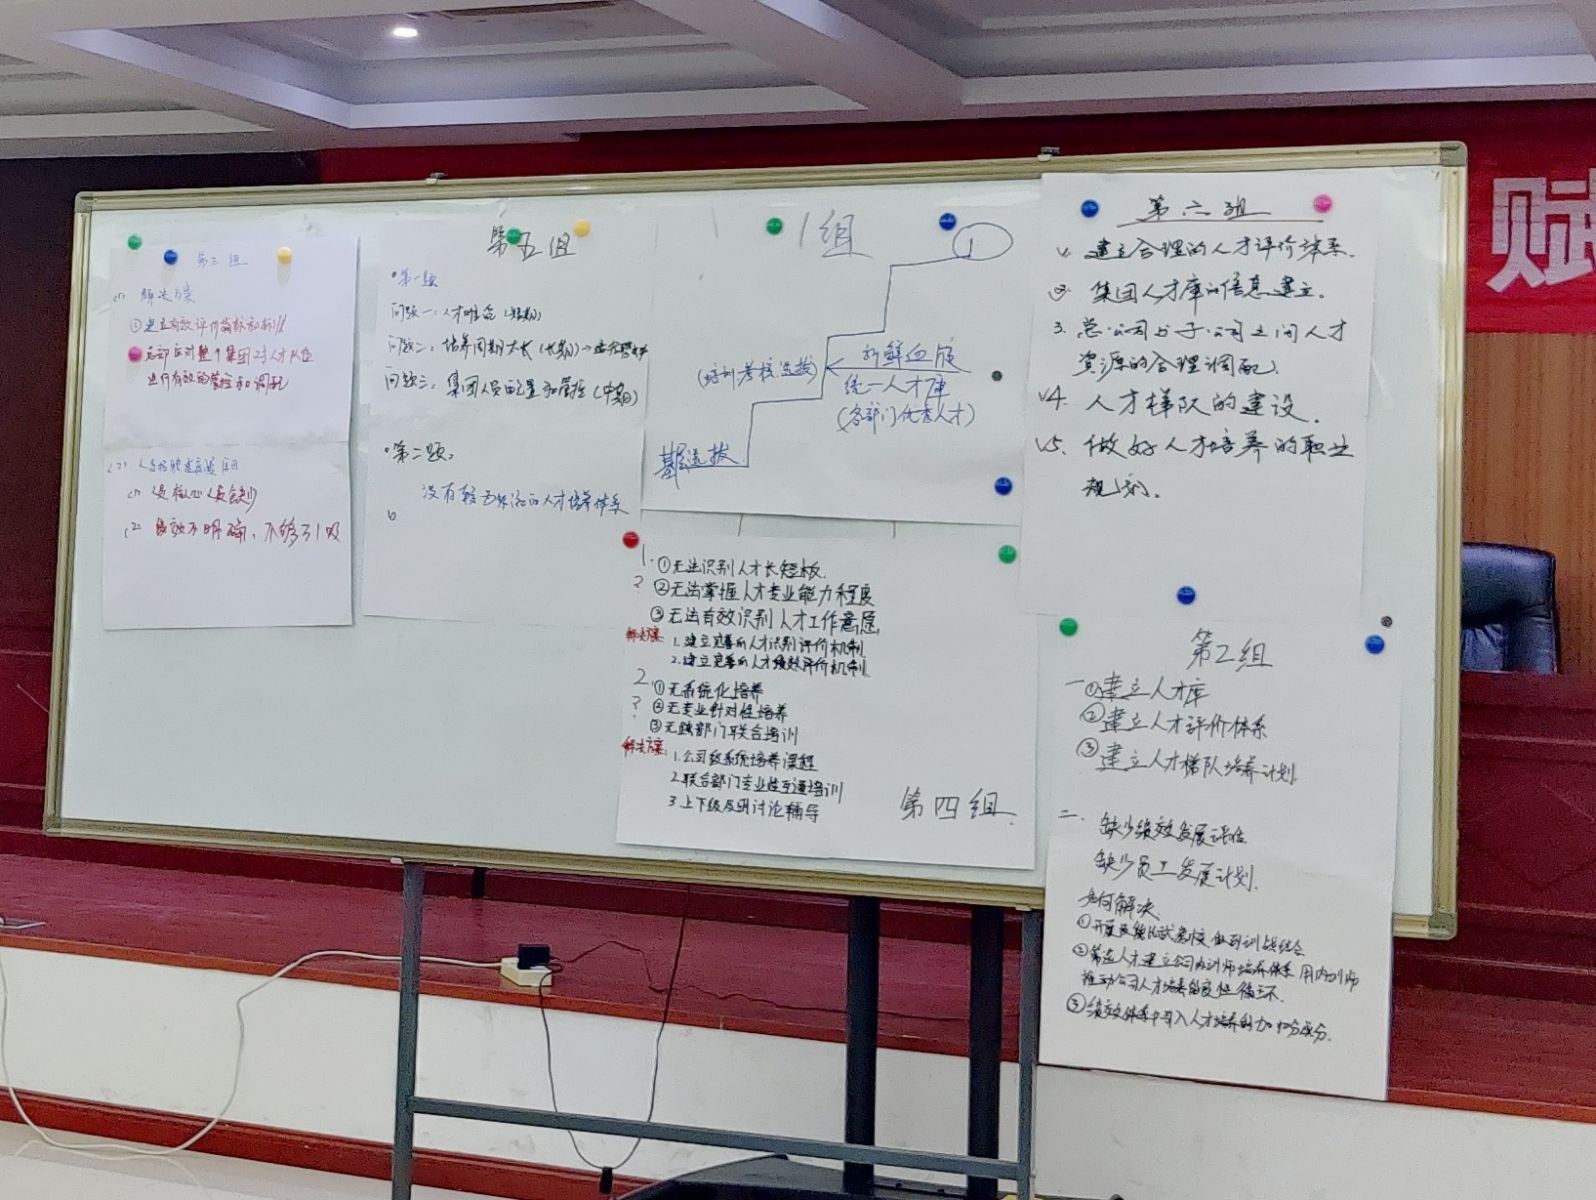 第三组
(1) 解决方案
①建立有效评价指标和标准
总部应对整个集团对人才队伍
进行有效的管控和调配
(2)
(1) 核心人员缺少
(2) 绩效不明确、不够引吸
第五组
第一题
问题一:人才
问题二:培养周期太长(长期)
问题三:集团人员配置和管控(中期)
第二题:
没有较为系统的人才培养体系
1组
1
(培训考核选拔)
新鲜血液
统一人才库
(各部门优秀人才)
基层选拔
第六组
1. 建立合理的人才评价体系.
2. 集团人才库的信息建立.
3. 总公司与子公司之间人才
资源的合理调配.
4. 人才梯队的建设.
5. 做好人才培养的职业
规划.
1. ①无法识别人才长短板.
? ②无法掌握人才专业能力程度
③无法有效识别人才工作意愿
解决方案:
1.建立完善的人才识别评价机制
2.建立完善的人才绩效评价机制
2. ①无系统化培养
? ②无专业针对性培养
? ③无跨部门联合培训
解决方案:
1.公司级系统培养课程
2.联合部门专业性互通培训
3.上下级及时讨论辅导
第四组.
第二组
一①建立人才库
②建立人才评价体系
③建立人才梯队培养计划
二.
缺少绩效发展评估
缺少员工发展计划.
如何解决
①开展 做到训战结合
②筛选人才建立公司内训师培养体系 用内训师
推动公司人才培养的良性循环.
③绩效体系中引入人才培养的加扣分成分.
赋